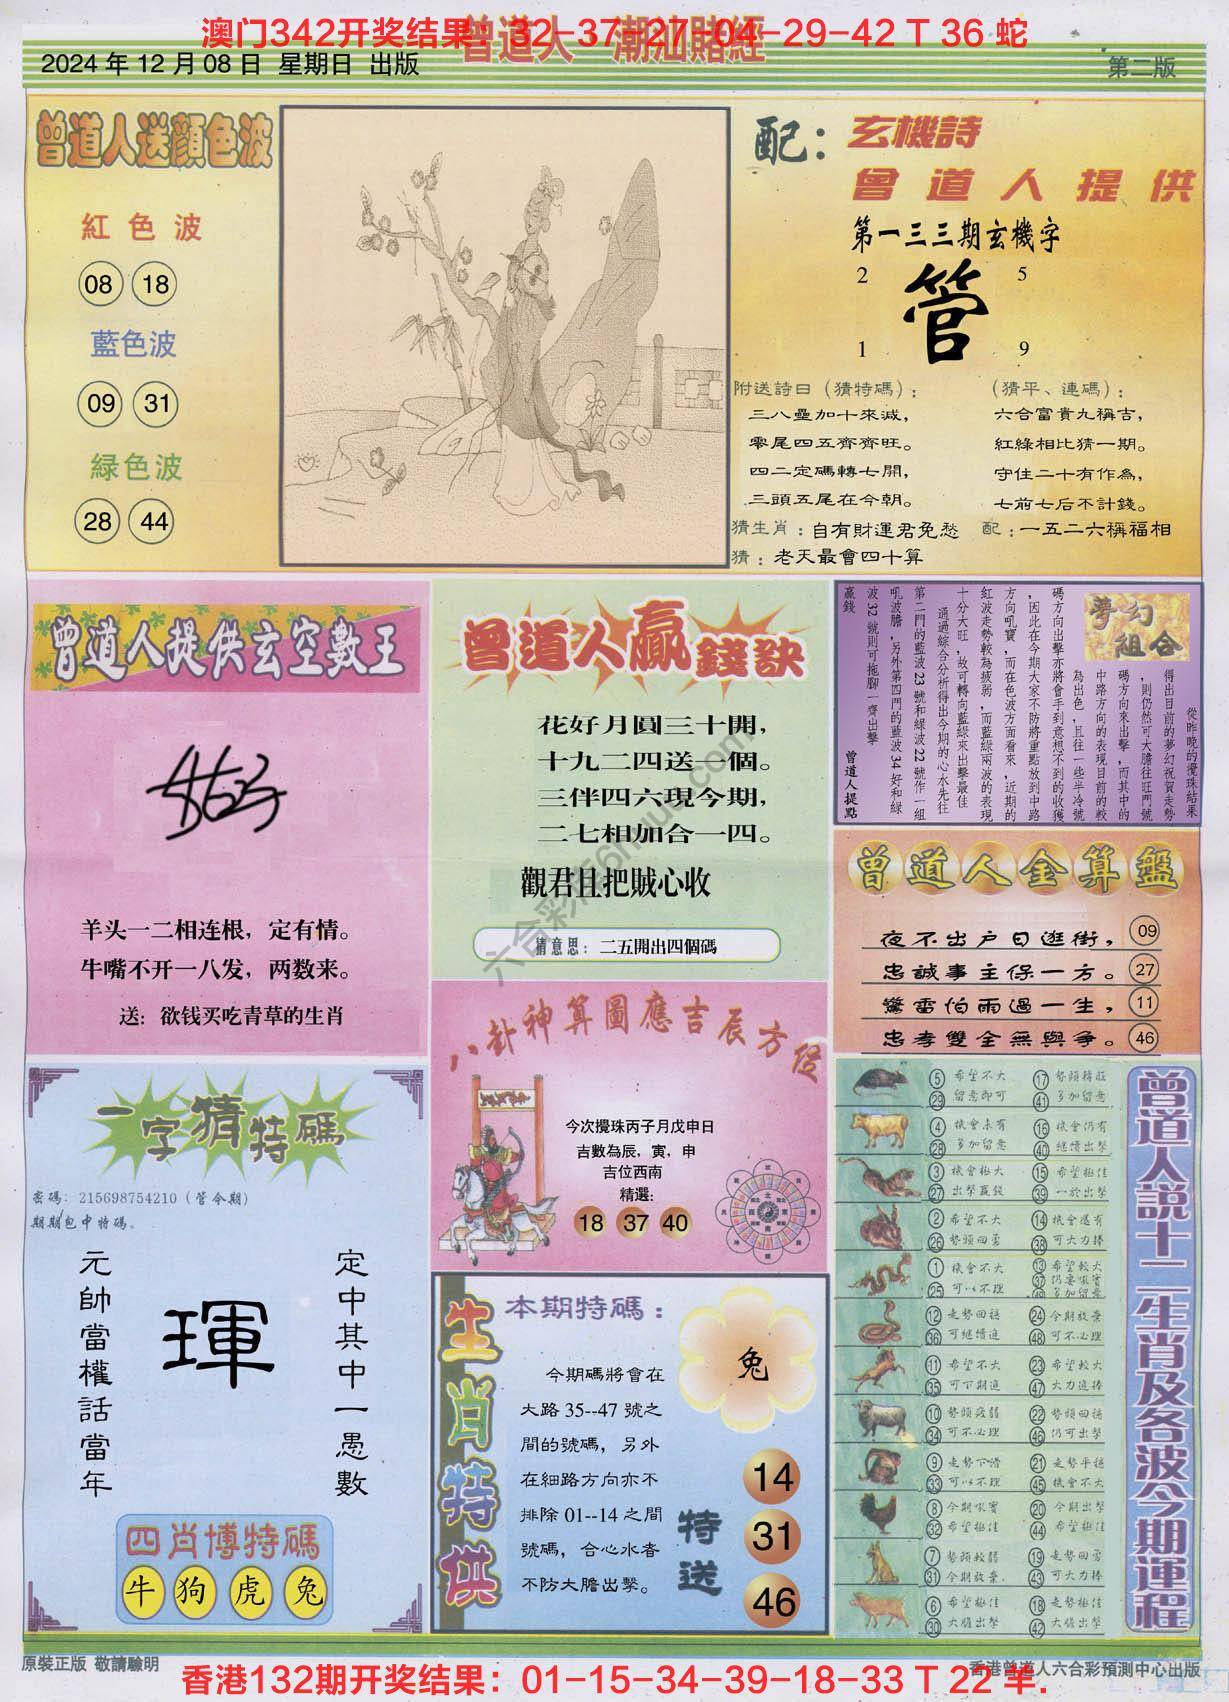 澳门342开奖结果：32-37-27-04-29-42 T 36 蛇
曾道人 潮汕賭經
2024 年 12 月 08 日 星期日 出版
第二版
曾道人送顏色波
紅色波
08 18
藍色波
09 31
緑色波
28 44
配：玄機詩
曾道人提供
第一三三期玄機字
2 5
管
1 9
附送詩曰（猜特碼）：
三八壘加十來減，
零尾四五齊齊旺。
四二定碼轉七開，
三頭五尾在今朝。
（猜平、連碼）：
六合富貴九稱吉，
紅綠相比猜一期。
守住二十有作為，
七前七后不計錢。
猜生肖：自有財運君免愁
配：一五二六稱福相
猜：老天最會四十算
曾道人提供玄空數王
羊头一二相连根，定有情。
牛嘴不开一八发，两数来。
送：欲钱买吃青草的生肖
曾道人贏錢訣
花好月圓三十開，
十九二四送一個。
三伴四六現今期，
二七相加合一四。
觀君且把賊心收
猜意思：二五開出四個碼
夢幻組合
從昨晚的攪珠結果
得出目前的夢幻祝賀走勢
，則仍然可大膽往旺門號
碼方向來出擊，而其中的
中路方向的表現目前的較
為出色，且往一些半冷號
碼方向出擊亦將會手到意想不到的收獲
，因此在今期大家不防將重點放到中路
方向吼寶，而在色波方面看來，近期的
紅波走勢較為疲弱，而藍綠兩波的表現
十分大旺，故可轉向藍綠來出擊最佳
通過綜合分析得出今期的心水先往
第二門的藍波23號和綠波22號作一組
吼波膽，另外第四門的藍波34好和綠
波32號則可拖腳一齊出擊
贏錢
曾道人提點
曾道人金算盤
夜不出户日逛街，09
忠誠事主保一方。27
驚雷怕雨過一生，11
忠孝雙全無與爭。46
八卦神算圖應吉辰方位
今次攪珠丙子月戊申日
吉數為辰，寅，申
吉位西南
精選：
18 37 40
一字猜特碼
密碼：215698754210（管令期）
期期包中特碼。
定中其中一愚數
琿
元帥當權話當年
四肖博特碼
牛 狗 虎 兔
生肖特供
本期特碼：
兔
今期碼將會在
大路 35--47 號之
間的號碼，另外
在細路方向亦不
排除 01--14 之間
號碼，合心水者
不防大膽出擊。
特送
14
31
46
曾道人説十二生肖及各波今期運程
⑤ 希望不大 ⑰ 勢頭精旺
㉙ 留意即可 ㊶ 多加留意
④ 機會未有 ⑯ 機會仍有
㉘ 多加留意 ㊵ 繼續出擊
③ 機會極大 ⑮ 希望極佳
㉗ 出擊贏錢 ㊴ 一於出擊
② 希望不大 ⑭ 機會還有
㉖ 勢頭回勇 ㊳ 可大力捧
① 機會不大 ⑬ 希望較大
㉕ 可以不理 ㊲ 仍要吼實
㊾ 多加留意
⑫ 走勢回穩 ㉔ 今期放棄
㊱ 可繼續追 ㊽ 可不必理
⑪ 希望不大 ㉓ 希望較大
㉟ 可下期追 ㊼ 大力追捧
⑩ 勢頭疲弱 ㉒ 勢頭回穩
㉞ 可不必理 ㊻ 仍可出擊
⑨ 走勢下滑 ㉑ 走勢平穩
㉝ 可以不理 ㊺ 機會不大
⑧ 今期吼實 ⑳ 今期出擊
㉜ 希望極佳 ㊹ 希望極佳
⑦ 勢頭較弱 ⑲ 走勢回勇
㉛ 今期放棄. ㊸ 可大力捧
⑥ 希望極佳 ⑱ 走勢極佳
㉚ 大膽出擊 ㊷ 大膽出擊
原裝正版 敬請驗明
香港曾道人六合彩預測中心出版
香港132期开奖结果：01-15-34-39-18-33 T 22 羊.